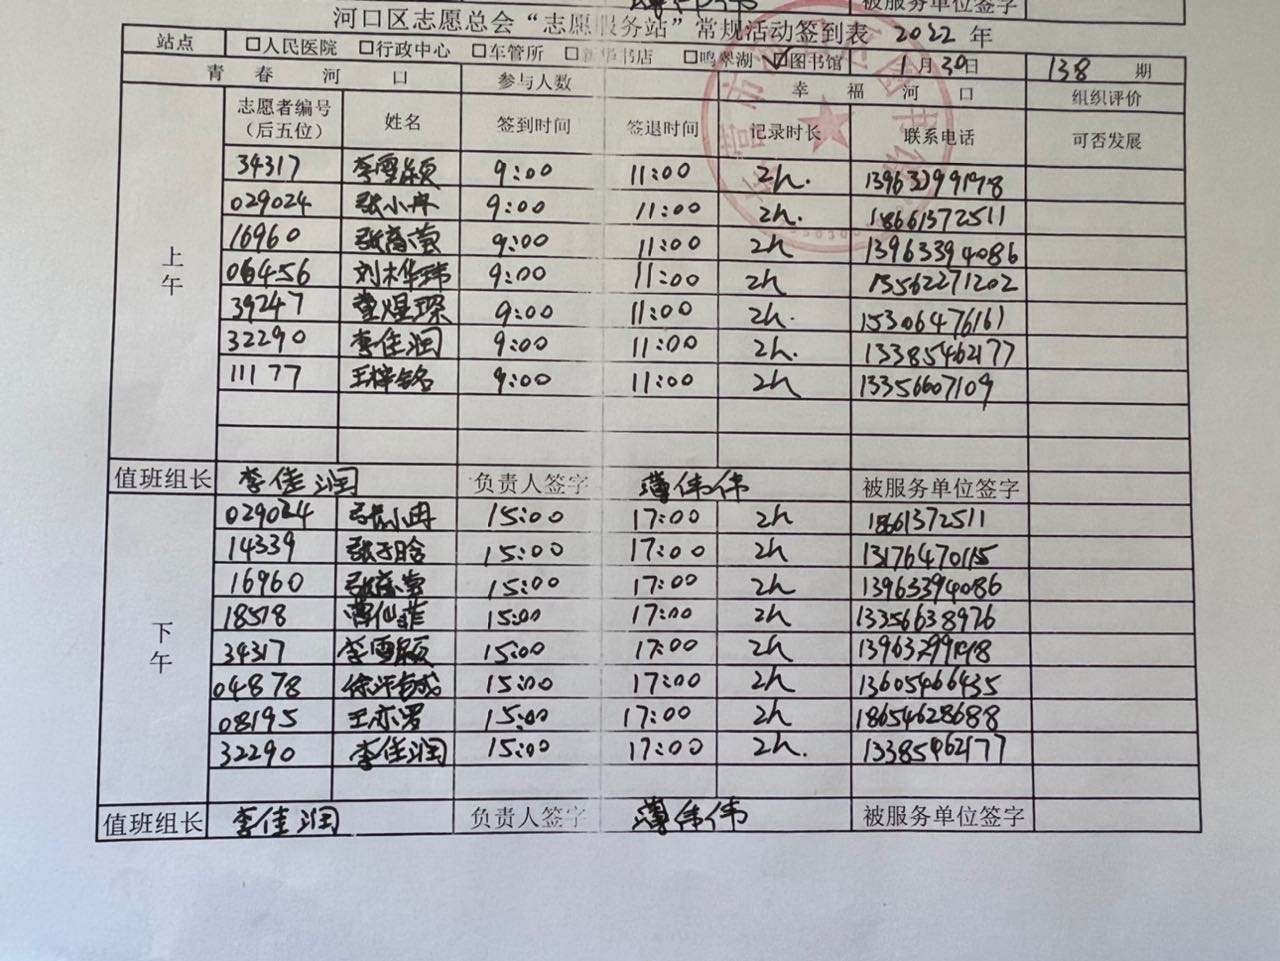 被服务单位签字
河口区志愿总会“志愿服务站”常规活动签到表 2022 年
站点 □人民医院 □行政中心 □车管所 □新华书店 □鸣翠湖 ☑图书馆 1月30日 138 期
青春河口 参与人数 幸福河口 组织评价
志愿者编号（后五位） 姓名 签到时间 签退时间 记录时长 联系电话 可否发展
上午
34317 李雪颖 9:00 11:00 2h. 13963299198
029024 张小冉 9:00 11:00 2h. 18661372511
16960 9:00 11:00 2h 13963394086
066456 刘林华玮 9:00 11:00 2h 13562271202
39247 董煜琛 9:00 11:00 2h. 15306476161
32290 李佳润 9:00 11:00 2h. 13385462177
11177 王梓铭 9:00 11:00 2h 13356607109
值班组长 李佳润 负责人签字 薄伟伟 被服务单位签字
下午
029024 张小冉 15:00 17:00 2h 18661372511
14339 张子晗 15:00 17:00 2h 13176470115
16960 15:00 17:00 2h 13963394086
18518 曹仙菲 15:00 17:00 2h 13356638976
34317 李雪颖 15:00 17:00 2h 13963299198
04878 徐许诺成 15:00 17:00 2h 13605466435
08195 王亦罗 15:00 17:00 2h 18654628688
32290 李佳润 15:00 17:00 2h. 13385462177
值班组长 李佳润 负责人签字 薄伟伟 被服务单位签字